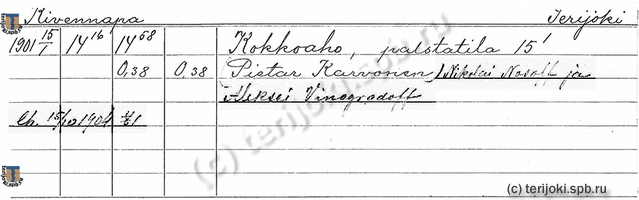 Kivennapa Terijoki
1901 15/1 14 16 14 58 Kokkoaho, palstatila 15'
0,38 0,38 Pietar Karvonen, Nikolai Nosoff ja
Aleksei Vinogradoff
Lh. 15/12 1904
(c) terijoki.spb.ru
(c) terijoki.spb.ru